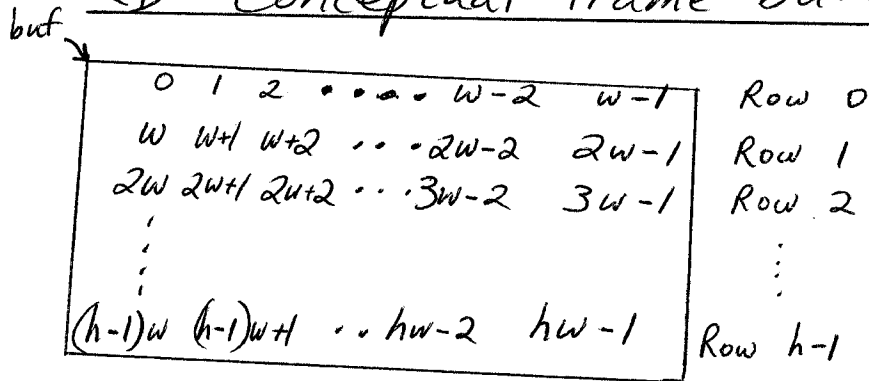 Conceptual frame
buf
0 1 2 .... w-2 w-1 Row 0
w w+1 w+2 ... 2w-2 2w-1 Row 1
2w 2w+1 2w+2 ... 3w-2 3w-1 Row 2
(h-1)w (h-1)w+1 .. hw-2 hw-1 Row h-1